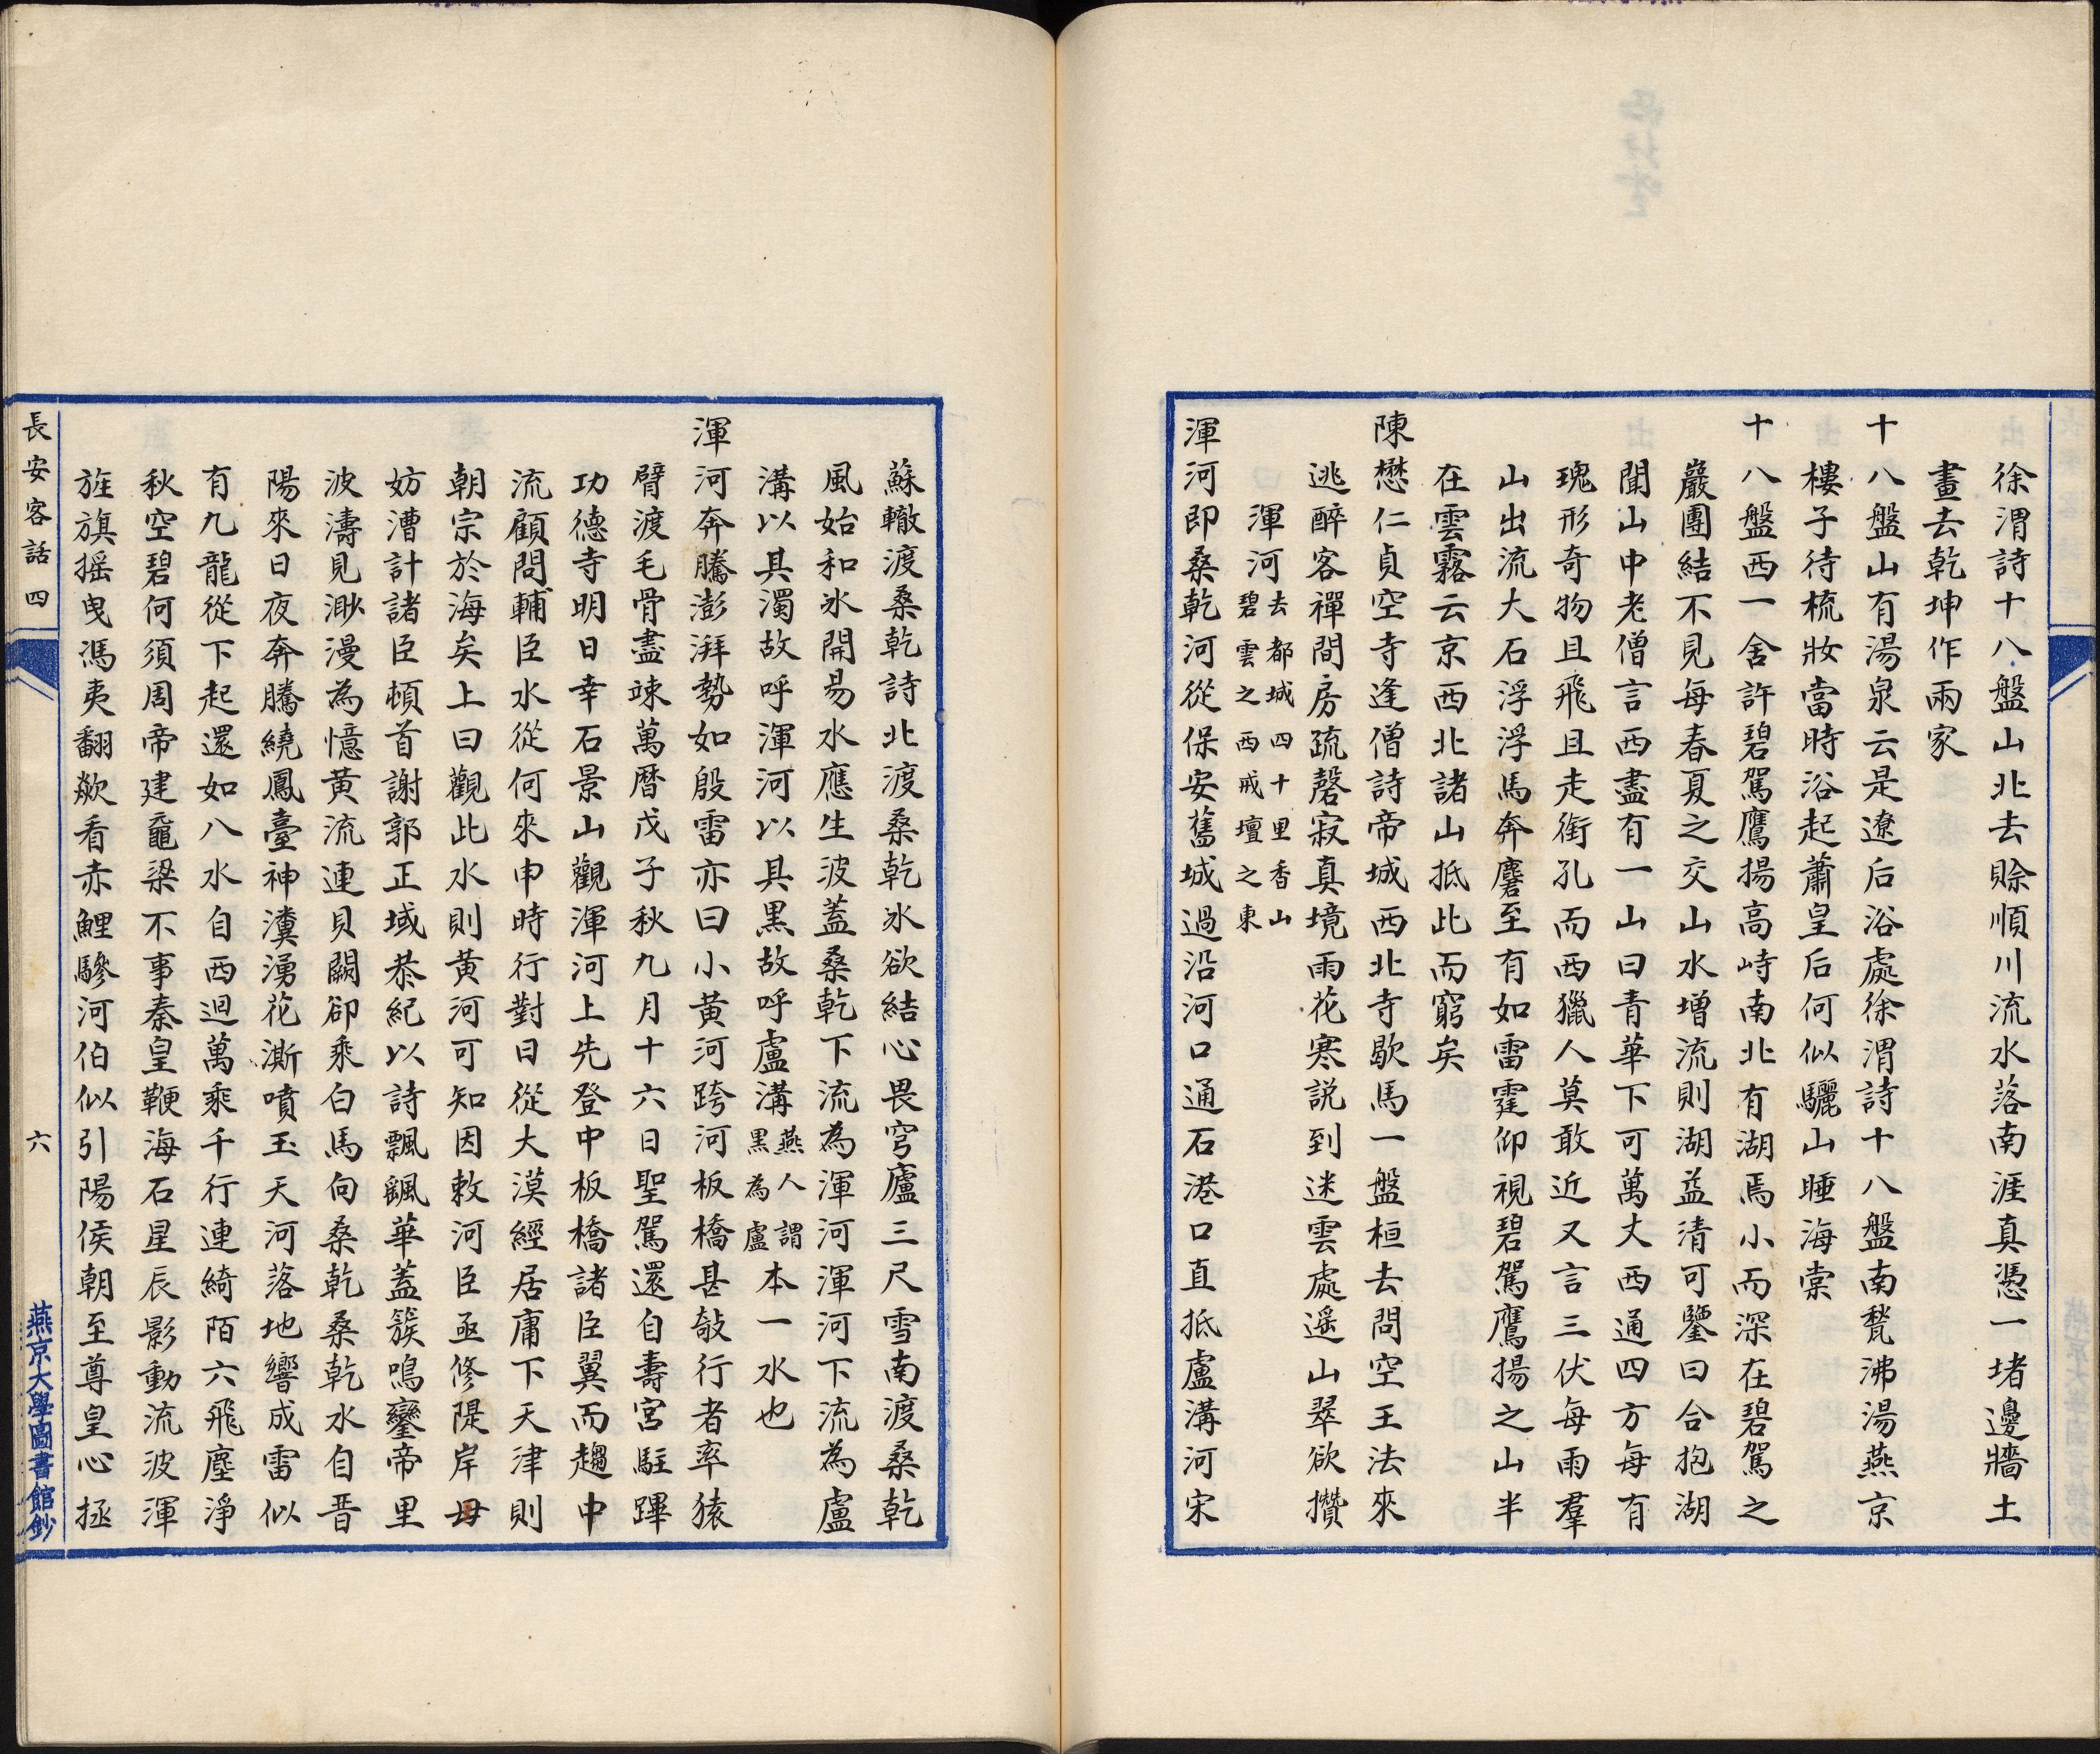 徐渭詩十八盤山北去賒順川流水落南涯真憑一堵邊牆土
畫去乾坤作兩家
十八盤山有湯泉云是遼后浴處徐渭詩十八盤南甃沸湯燕京
樓子待梳妝當時浴起蕭皇后何似驪山睡海棠
十八盤西一舍許碧駕鷹揚高峙南北有湖焉小而深在碧駕之
巖團結不見每春夏之交山水增流則湖益清可鑒曰合抱湖
聞山中老僧言西盡有一山曰青華下可萬丈西通四方每有
瑰形奇物且飛且走銜孔而西獵人莫敢近又言三伏每雨羣
山出流大石浮浮馬奔麏至有如雷霆仰視碧駕鷹揚之山半
在雲霧云京西北諸山抵此而窮矣
陳懋仁貞空寺逢僧詩帝城西北寺歇馬一盤桓去問空王法來
逃醉客禪間房疏磬寂真境雨花寒説到迷雲處遥山翠欲攢
渾河去都城四十里香山碧雲之西戒壇之東
渾河即桑乾河從保安舊城過沿河口通石港口直抵盧溝河宋
蘇轍渡桑乾詩北渡桑乾氷欲結心畏穹廬三尺雪南渡桑乾
風始和氷開易水應生波蓋桑乾下流為渾河渾河下流為盧
溝以其濁故呼渾河以其黒故呼盧溝燕人謂黒為盧本一水也
渾河奔騰澎湃勢如殷雷亦曰小黄河跨河板橋甚攲行者率猿
臂渡毛骨盡竦萬曆戊子秋九月十六日聖駕還自壽宮駐蹕
功德寺明日幸石景山觀渾河上先登中板橋諸臣翼而趨中
流顧問輔臣水從何來申時行對曰從大漠經居庸下天津則
朝宗於海矣上曰觀此水則黄河可知因敕河臣亟修隄岸毋
妨漕計諸臣頓首謝郭正域恭紀以詩飄颻華蓋簇鳴鑾帝里
波濤見渺漫為憶黄流連貝闕卻乘白馬向桑乾桑乾水自晋
陽來日夜奔騰繞鳳臺神瀵湧花澌噴玉天河落地響成雷似
有九龍從下起還如八水自西迴萬乘千行連綺陌六飛塵淨
秋空碧何須周帝建黿梁不事秦皇鞭海石星辰影動流波渾
旌旗摇曳馮夷翻欻看赤鯉驂河伯似引陽侯朝至尊皇心拯
長安客話四
六
燕京大學圖書館鈔